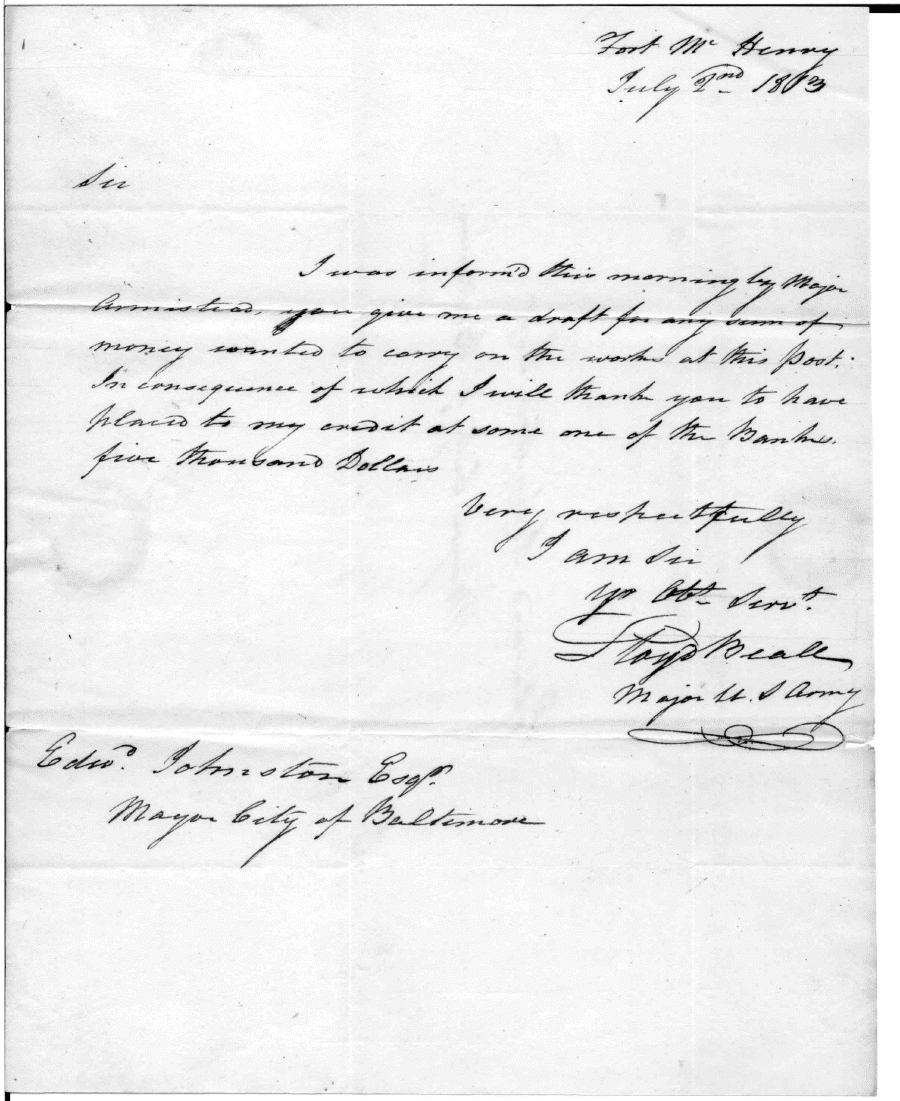 Fort Mc Henry
July 2nd 1813
Sir
I was inform'd this morning by Major
Armistead, you give me a draft for any sum of
money wanted to carry on the works at this Post.
In consequence of which I will thank you to have
placed to my credit at some one of the Banks.
five thousand Dollars
Very respectfully
I am Sir
Yr Obt Servt.
Lloyd Beall
Major U. S Army
Edwd. Johnston Esqr.
Mayor City of Baltimore